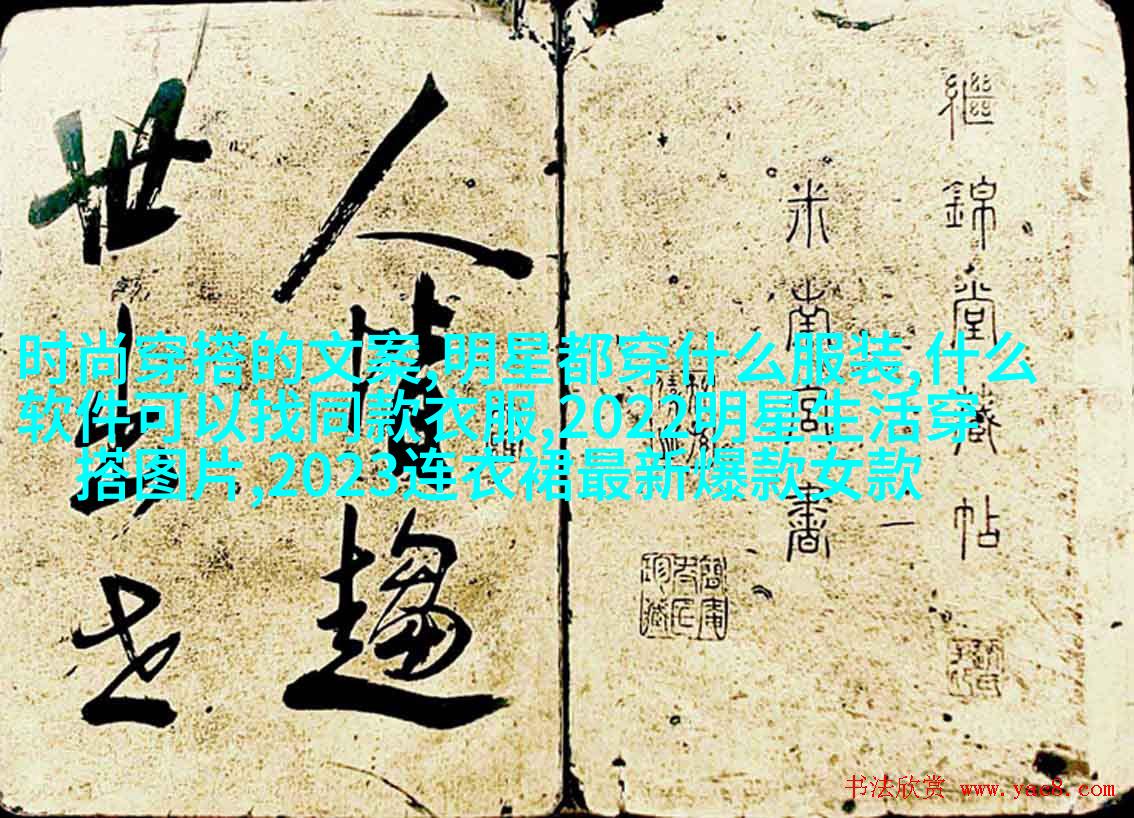 繼錦堂藏帖
米南宮書
一
人
趨
世
时尚穿搭的文案,明星都穿什么服装,什么
软件可以找同款衣服,2022明星生活穿
搭图片,2023连衣裙最新爆款女款
书法欣赏 www.yac8.com